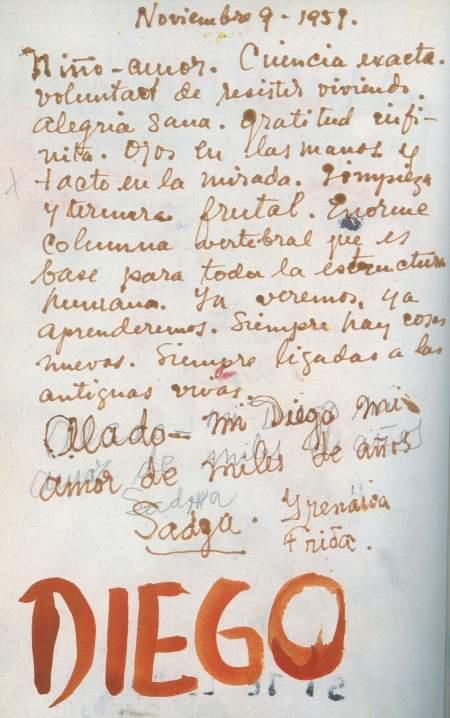 Noviembre 9 - 1951.
Niño-amor. Ciencia exacta.
voluntad de resistir viviendo.
alegria sana. gratitud infi-
nita. Ojos en las manos y
tacto en la mirada. Limpieza
y ternura frutal. Enorme
columna vertebral que es
base para toda la estructura
humana. Ya veremos, ya
aprenderemos. Siempre hay cosas
nuevas. Siempre ligadas a las
antiguas vivas.
Alado - Mi Diego mi
amor de miles de años
Sadga. Yrenaica
Frida.
DIEGO